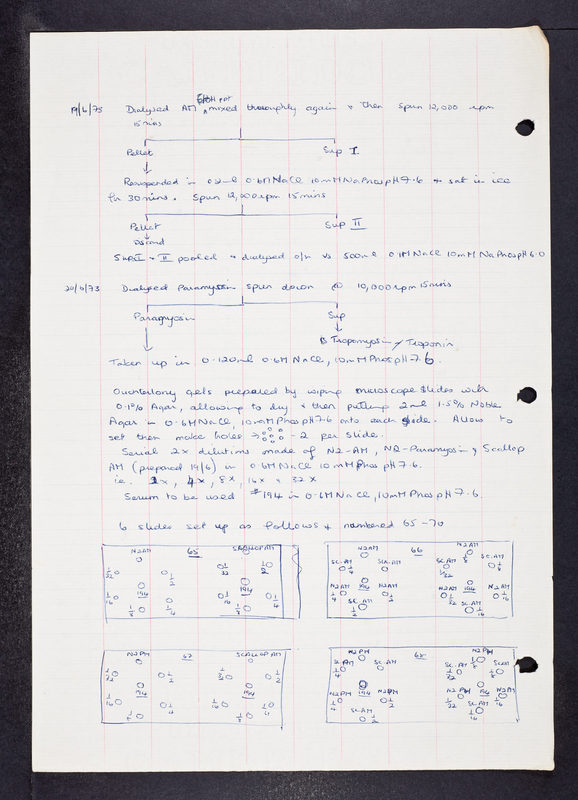 19/6/75 Dialysed AM mixed thoroughly again & then spun 12,000 rpm
15 mins
Pellet Sup I
Resuspended in 0.2ml 0.6M NaCl 10mM NaPhos pH 7.6 & sat in ice
for 30 mins. Spun 12,000 rpm 15 mins
Pellet Sup II
Discard
Sup I + II pooled & dialysed o/n vs 500ml 0.1M NaCl 10mM NaPhos pH 6.0
Dialysed Paramyosin spun down @ 10,000 rpm 15 mins
Paramyosin Sup
B Tropomyosin / Troponin
Taken up in 0.120ml 0.6M NaCl, 10mM Phos pH 7.6.
Ouchterlony gels prepared by wiping microscope slides with
0.1% Agar, allowing to dry & then putting 2ml 1.5% Noble
Agar in 0.6M NaCl, 10mM Phos pH 7.6 onto each slide. Allow to
set then make holes → - 2 per slide.
Serial 2x dilutions made of N2-AM, N2-Paramyosin & Scallop
AM (prepared 19/6) in 0.6M NaCl 10mM Phos pH 7.6.
i.e. 2x, 4x, 8x, 16x & 32x
Serum to be used #194 in 0.6M NaCl, 10mM Phos pH 7.6.
6 slides set up as follows & numbered 65-70
N2AM 65 SCALLOP AM
1/32 1/2 1/32 1/2
194 194
1/16 1/16 1/4
1/8 1/4 1/8
N2AM 66 N2AM
SC.AM 1/4 SC.AM SC.AM 1/32 SC.AM 1/8
N2AM 1/4 194 N2AM 1/2 N2AM 1/32 194 N2AM 1/16
SC.AM 1/2 SC.AM 1/16
N2PM 67 SCALLOP AM
1/32 1/2 1/32 1/2
194 194
1/16 1/4 1/16 1/4
1/8 1/8
N2PM 68 N2PM 1/8
1/4 SC.AM SC.AM 1/32 SC.AM 1/8
N2PM 1/4 194 N2PM 1/2 N2PM 1/32 194 1/16
SC.AM 1/2 SC.AM 1/16